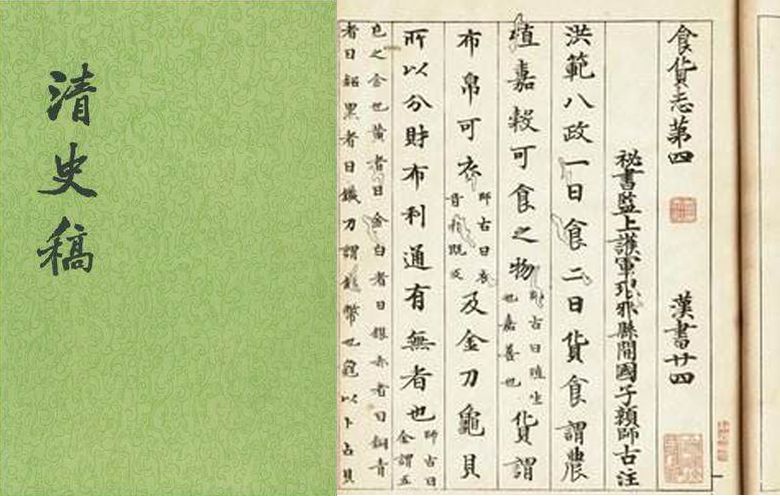 清史稿
食貨志第四 漢書廿四
祕書監上護軍琅邪縣開國子顏師古注
洪範八政一曰食二曰貨食謂農
植嘉穀可食之物師古曰殖生也嘉善也貨謂
布帛可衣師古曰衣音於既反及金刀龜貝
所以分財布利通有無者也師古曰金謂五
色之金也黃者曰金白者曰銀赤者曰銅青
者曰鉛黑者曰鐵刀謂錢幣也龜以卜占貝